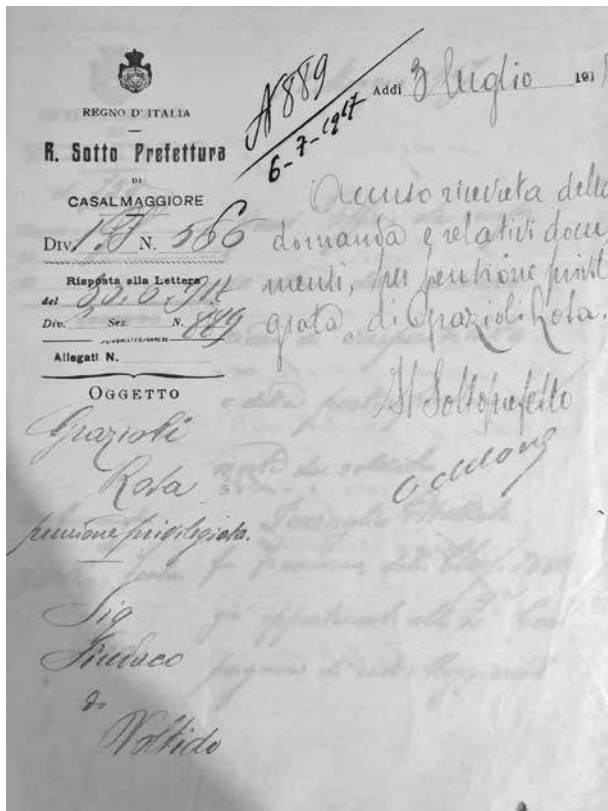 REGNO D'ITALIA
R. Sotto Prefettura
DI
CASALMAGGIORE
Div. N. 566
Risposta alla Lettera
del 30.6.917
Div. Sez. N. 889
Allegati N.
OGGETTO
Grazioli
Rosa
pensione privilegiata.
Sig
Sindaco
di
Voltido
N 889
6-7-1917
Addì 3 luglio 191
Accuso ricevuta della
domanda e relativi docu
menti, per pensione privil
giata di Grazioli Rosa.
Il Sottoprefetto